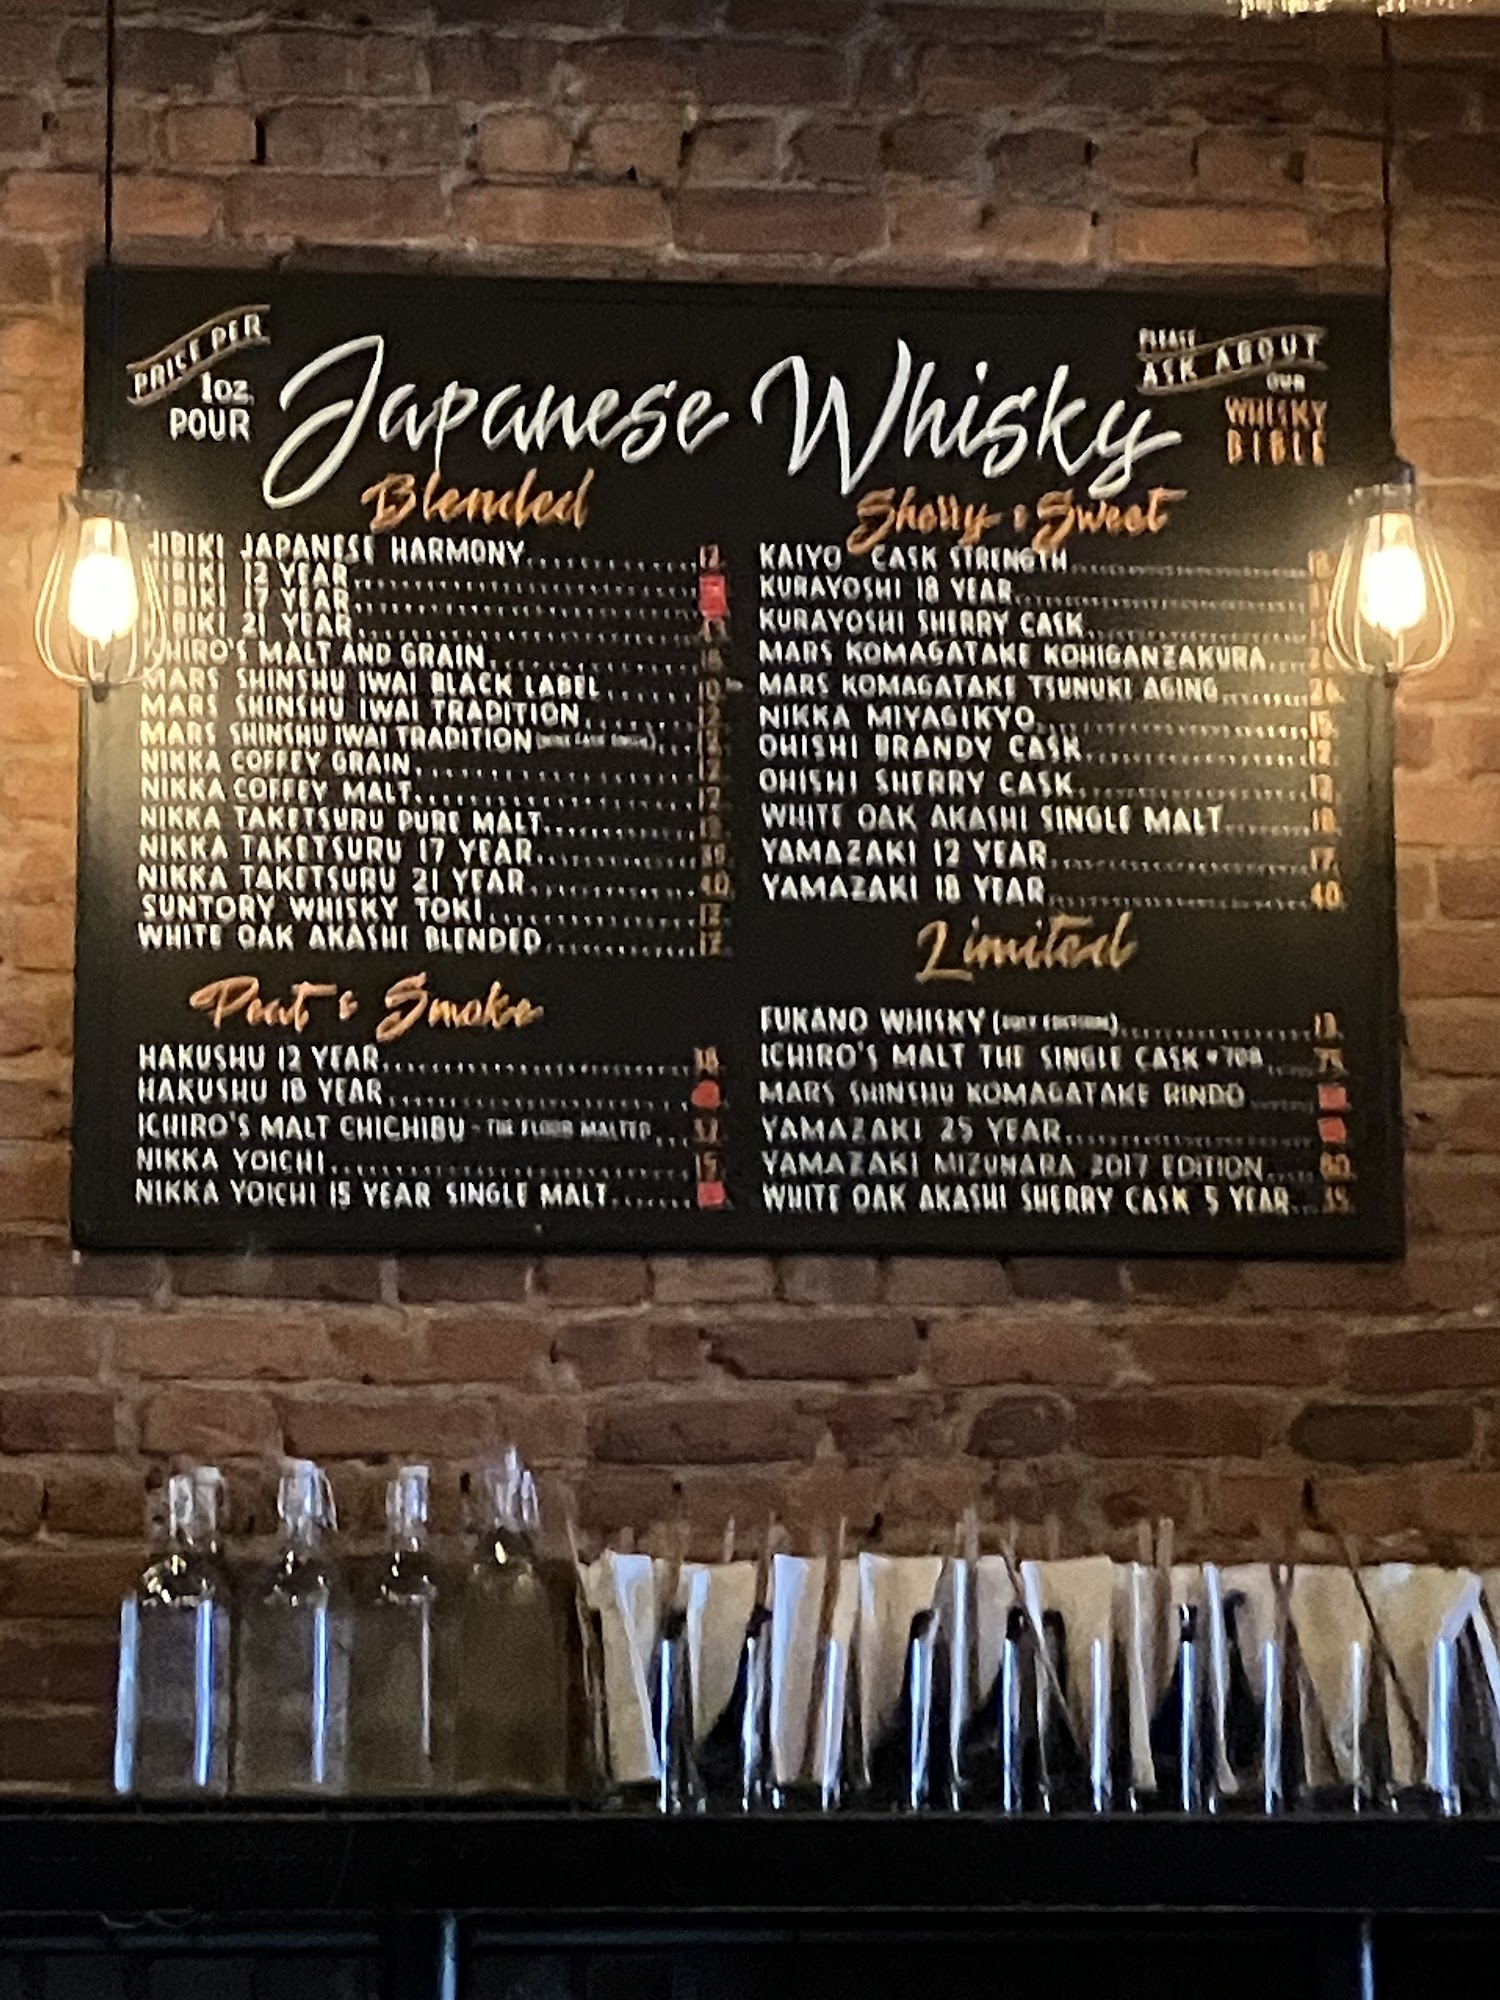 PRICE PER
1oz.
POUR
Japanese Whisky
PLEASE
ASK ABOUT
OUR
WHISKY
BIBLE
Blended
HIBIKI JAPANESE HARMONY 12.
HIBIKI 12 YEAR
HIBIKI 17 YEAR
HIBIKI 21 YEAR
ICHIRO'S MALT AND GRAIN
MARS SHINSHU IWAI BLACK LABEL 10.
MARS SHINSHU IWAI TRADITION 12.
MARS SHINSHU IWAI TRADITION (WINE CASK FINISH)
NIKKA COFFEY GRAIN 12.
NIKKA COFFEY MALT 12.
NIKKA TAKETSURU PURE MALT
NIKKA TAKETSURU 17 YEAR
NIKKA TAKETSURU 21 YEAR 40.
SUNTORY WHISKY TOKI 12.
WHITE OAK AKASHI BLENDED 12.
Peat & Smoke
HAKUSHU 12 YEAR
HAKUSHU 18 YEAR
ICHIRO'S MALT CHICHIBU - THE FLOOR MALTED
NIKKA YOICHI 15.
NIKKA YOICHI 15 YEAR SINGLE MALT
Sherry & Sweet
KAIYO CASK STRENGTH
KURAYOSHI 18 YEAR
KURAYOSHI SHERRY CASK
MARS KOMAGATAKE KOHIGANZAKURA
MARS KOMAGATAKE TSUNUKI AGING 26.
NIKKA MIYAGIKYO 15.
OHISHI BRANDY CASK 12.
OHISHI SHERRY CASK 12.
WHITE OAK AKASHI SINGLE MALT 18.
YAMAZAKI 12 YEAR 17.
YAMAZAKI 18 YEAR 40.
Limited
FUKANO WHISKY 13.
ICHIRO'S MALT THE SINGLE CASK #708 75.
MARS SHINSHU KOMAGATAKE RINDO
YAMAZAKI 25 YEAR
YAMAZAKI MIZUNARA 2017 EDITION
WHITE OAK AKASHI SHERRY CASK 5 YEAR 35.